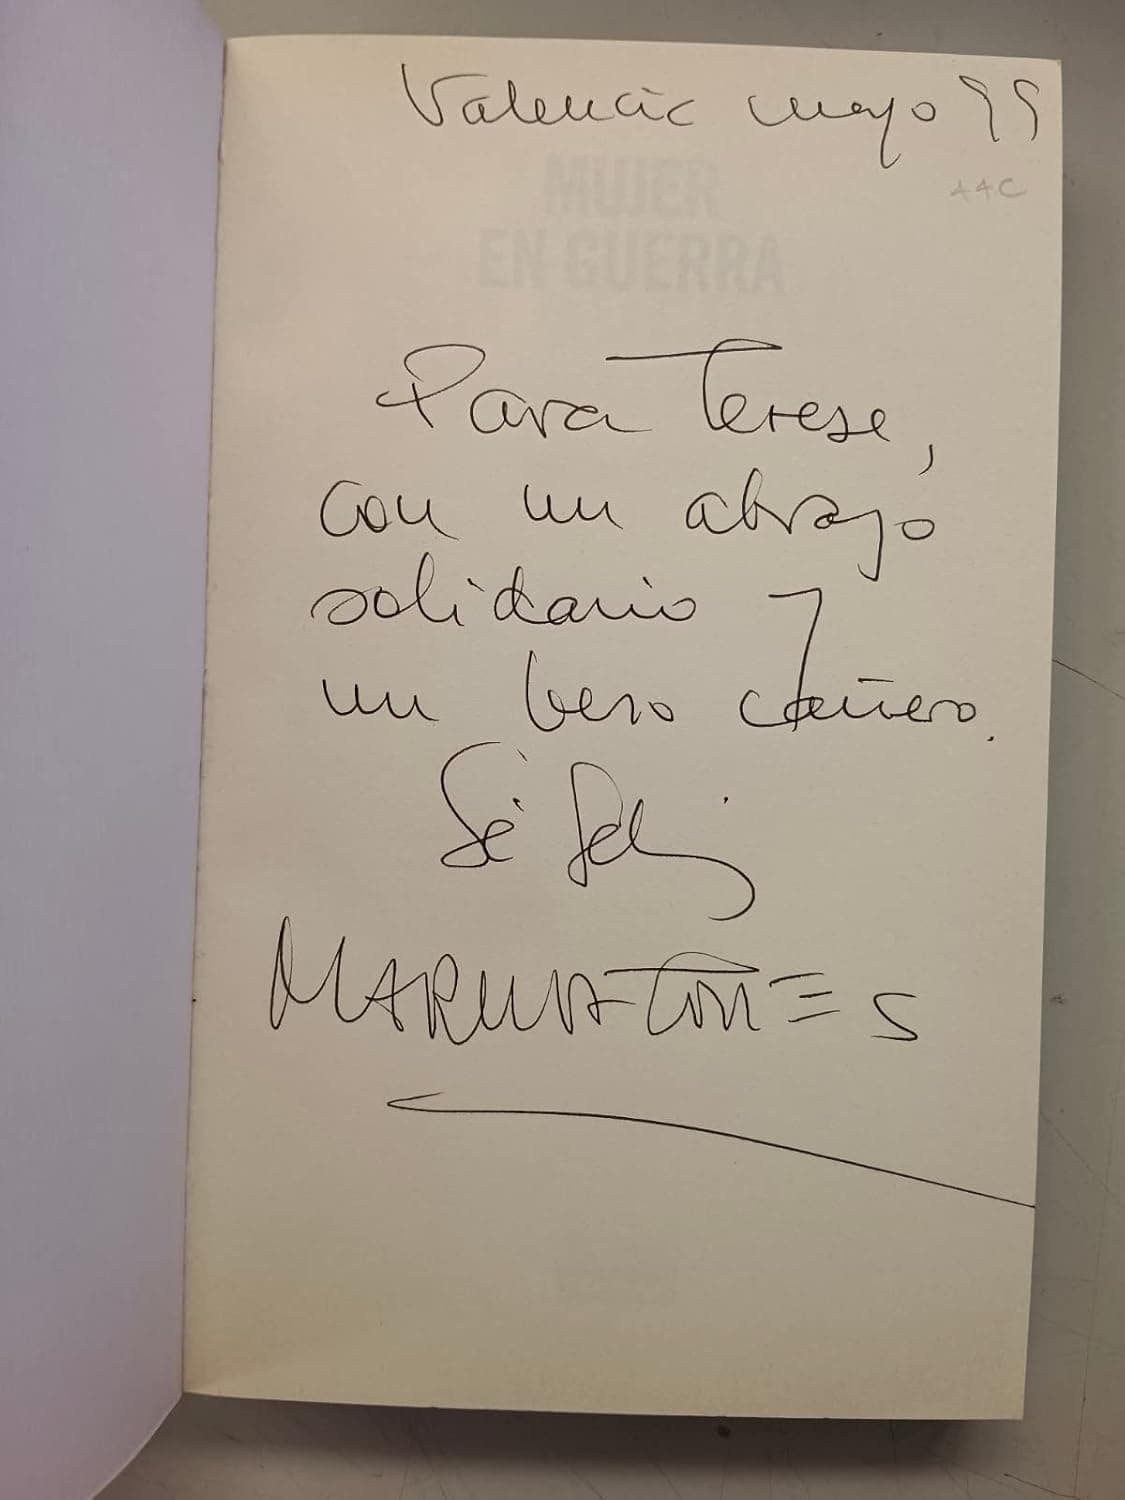 Valencia mayo 99
AAC
MUJER
EN GUERRA
Para Terese,
con un abrazo
solidario y
un beso cañero.
Sé feliz
MARUJA TORRES